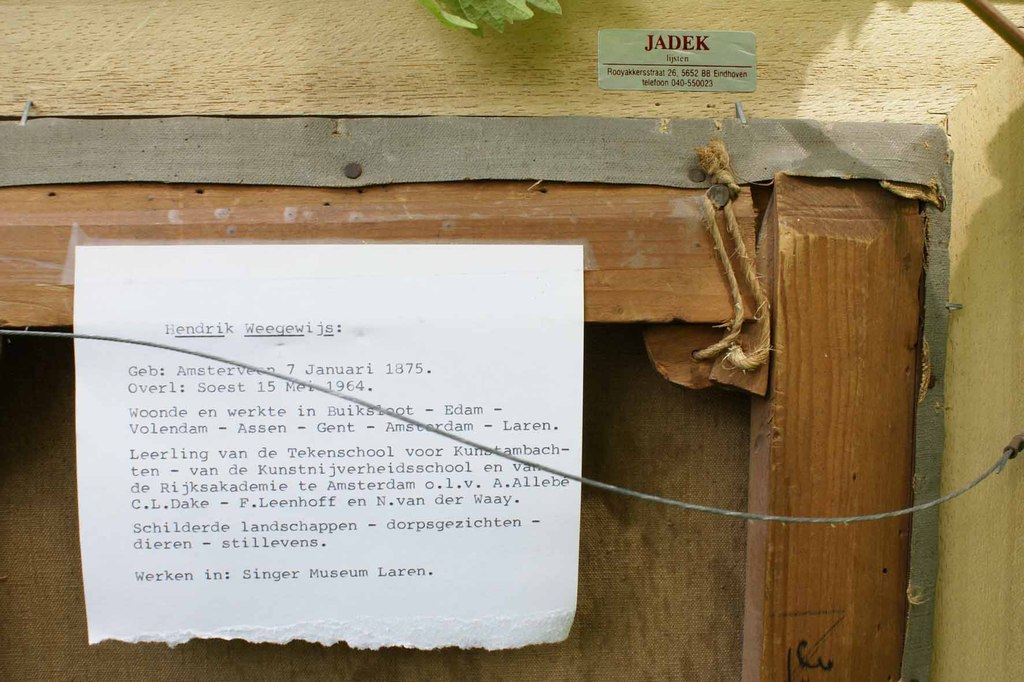 JADEK
lijsten
Rooyakkersstraat 26, 5652 BB Eindhoven
telefoon 040-550023
Hendrik Weegewijs:
Geb: Amsterveen 7 Januari 1875.
Overl: Soest 15 Mei 1964.
Woonde en werkte in Buiksloot - Edam -
Volendam - Assen - Gent - Amsterdam - Laren.
Leerling van de Tekenschool voor Kunstambach-
ten - van de Kunstnijverheidsschool en van
de Rijksakademie te Amsterdam o.l.v. A.Allebé
C.L.Dake - F.Leenhoff en N.van der Waay.
Schilderde landschappen - dorpsgezichten -
dieren - stillevens.
Werken in: Singer Museum Laren.